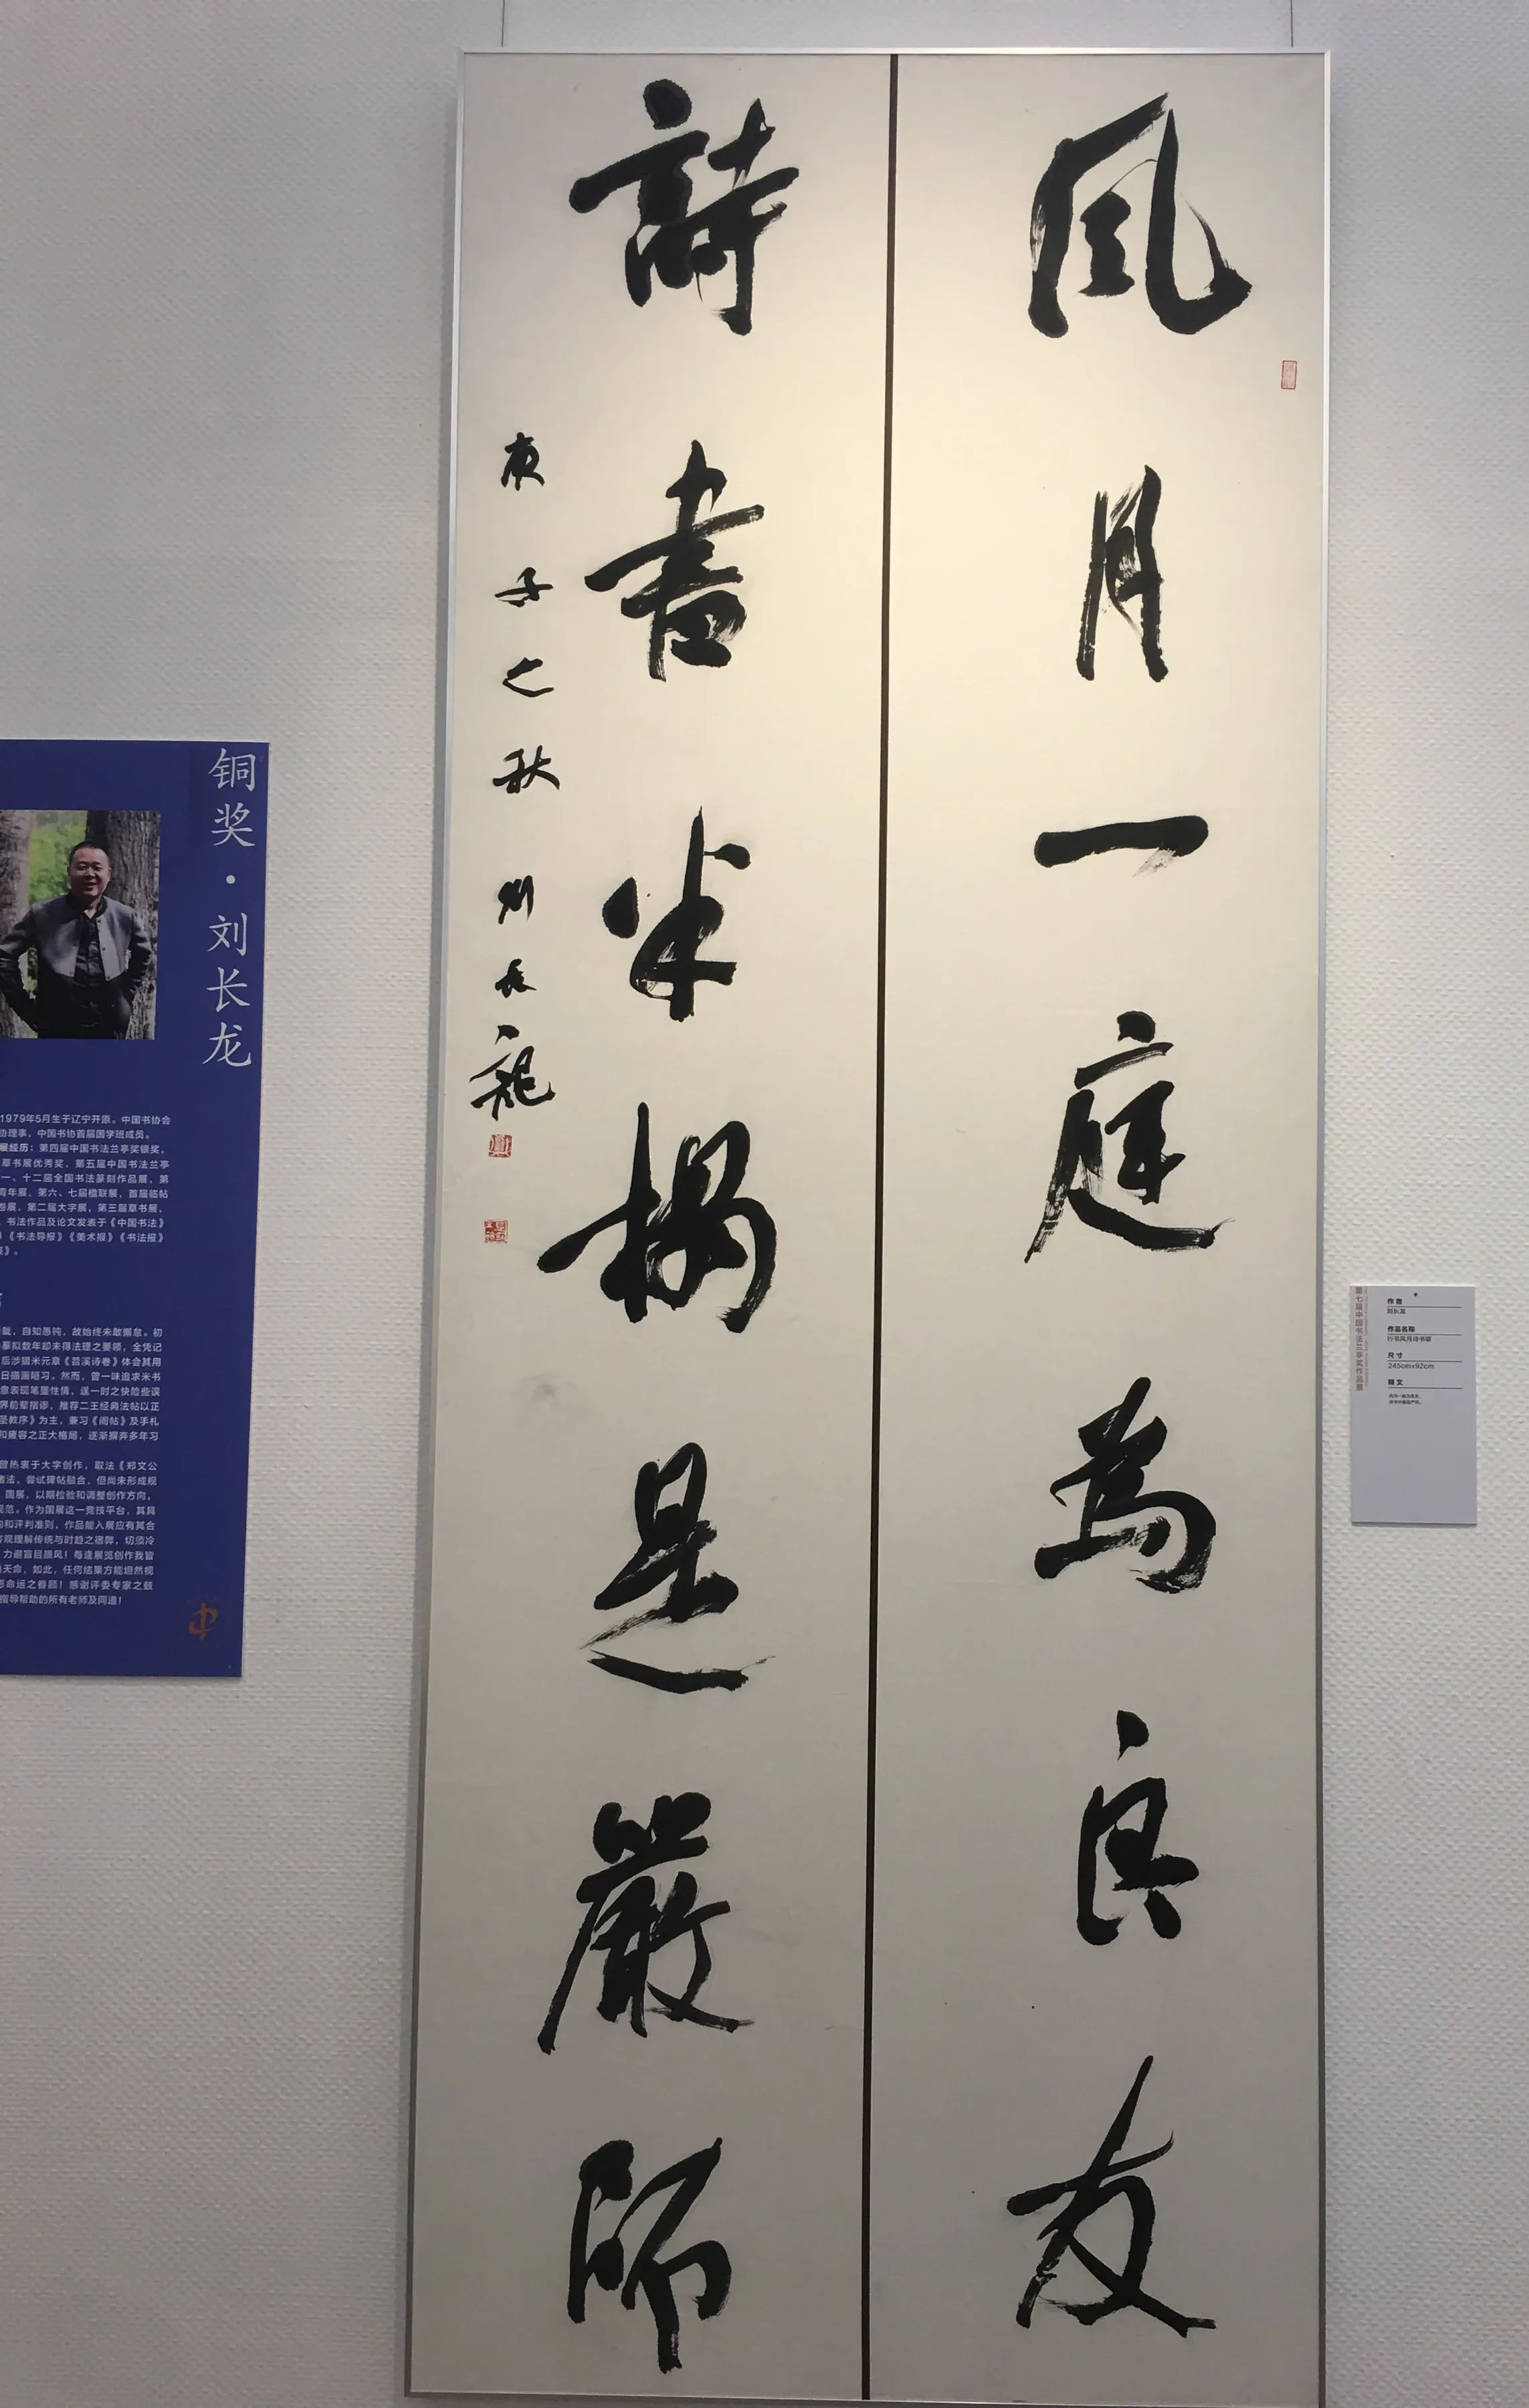 風月一庭為良友
詩書半榻是嚴師
庚子之秋 刘長龍
铜奖·刘长龙
1979年5月生于辽宁开原。中国书协会
协理事，中国书协首届国学班成员。
展经历：第四届中国书法兰亭奖银奖，
草书展优秀奖，第五届中国书法兰亭
一、十二届全国书法篆刻作品展，第
青年展，第六、七届楹联展，首届临帖
卷展，第二届大字展，第三届草书展，
书法作品及论文发表于《中国书法》
《书法导报》《美术报》《书法报》
，自知愚钝，故始终未敢懈怠。初
摹拟数年却未得法理之要领，全凭记
后涉猎米元章《苕溪诗卷》体会其用
日描画临习。然而，曾一味追求米书
意表现笔墨性情，逞一时之快险些误
界前辈指谬，推荐二王经典法帖以正
圣教序》为主，兼习《阁帖》及手札
和雍容之正大格局，逐渐摒弃多年习
曾热衷于大字创作，取法《郑文公
诸法，尝试碑帖融合，但尚未形成规
国展，以期检验和调整创作方向，
规范。作为国展这一竞技平台，其具
向和评判准则，作品能入展应有其合
客观理解传统与时趋之宿弊，切须冷
力避盲目跟风！每逢展览创作我皆
天命，如此，任何结果方能坦然视
恶命运之眷顾！感谢评委专家之鼓
指导帮助的所有老师及同道！
第七届中国书法兰亭奖作品展
作者
刘长龙
作品名称
行书风月诗书联
尺寸
245cm×92cm
释文
风月一庭为良友，
诗书半榻是严师。